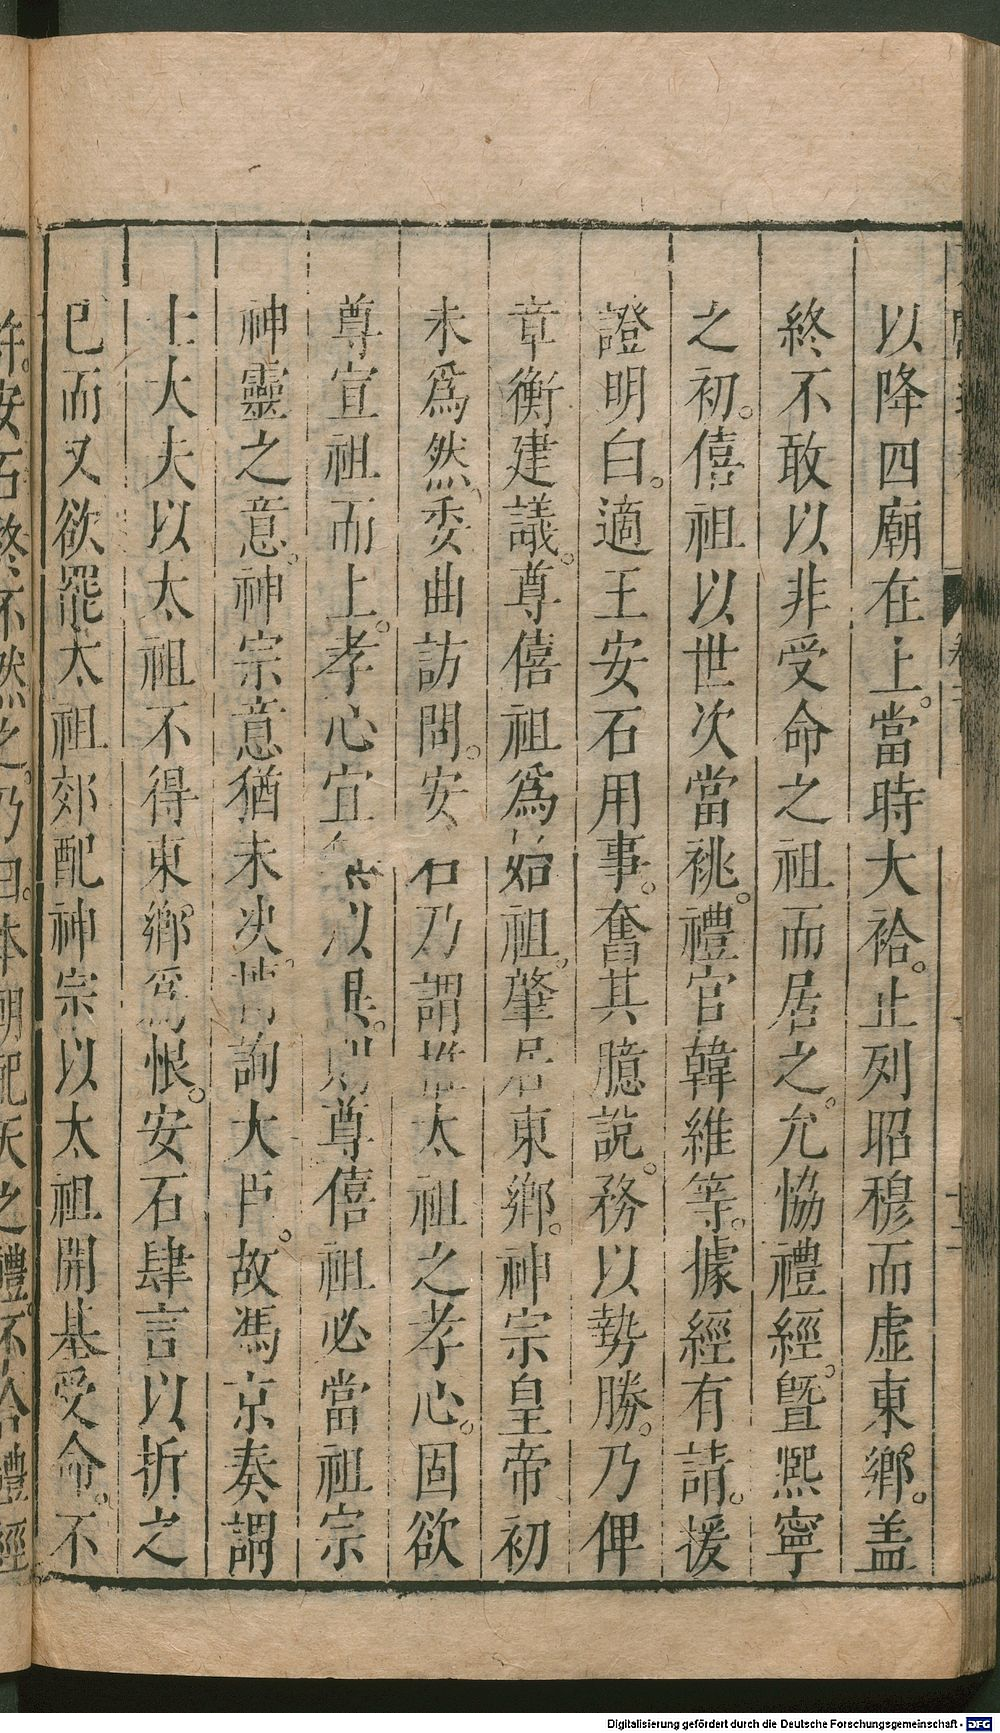 以降四廟在上。當時大祫。止列昭穆而虛東鄉。盖
終不敢以非受命之祖而居之。允恊禮經。曁熈寧
之初。僖祖以世次當祧。禮官韓維等。據經有請。援
證明白。適王安石用事。奮其臆說。務以勢勝。乃俾
章衡建議。尊僖祖爲始祖。肇居東鄉。神宗皇帝初
未爲然。委曲訪問。安石乃謂推太祖之孝心。固欲
尊宣祖而上。孝心宜以是。則尊僖祖必當祖宗
神靈之意。神宗意猶未决。詢大臣。故馮京奏謂
士大夫以太祖不得東鄉爲恨。安石肆言以折之
已而又欲罷太祖郊配神宗以太祖開基受命。不
許。安石終不然之。乃曰。本朝配天之禮。不合禮經
Digitalisierung gefördert durch die Deutsche Forschungsgemeinschaft - DFG